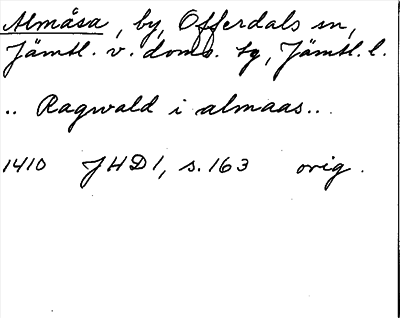 Almåsa, by, Offerdals sn,
Jämtl. v. doms. tg, Jämtl. l.
.. Ragwald i almaas..
1410 JHD 1, s. 163 orig.